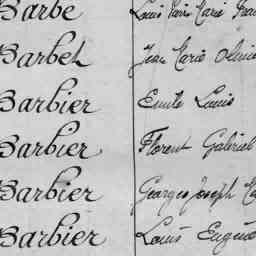 Barbe Louis Marie
Barbet Jean Marie
Barbier Emile Louis
Barbier Florent Gabriel
Barbier Georges Joseph
Barbier Louis Eugène